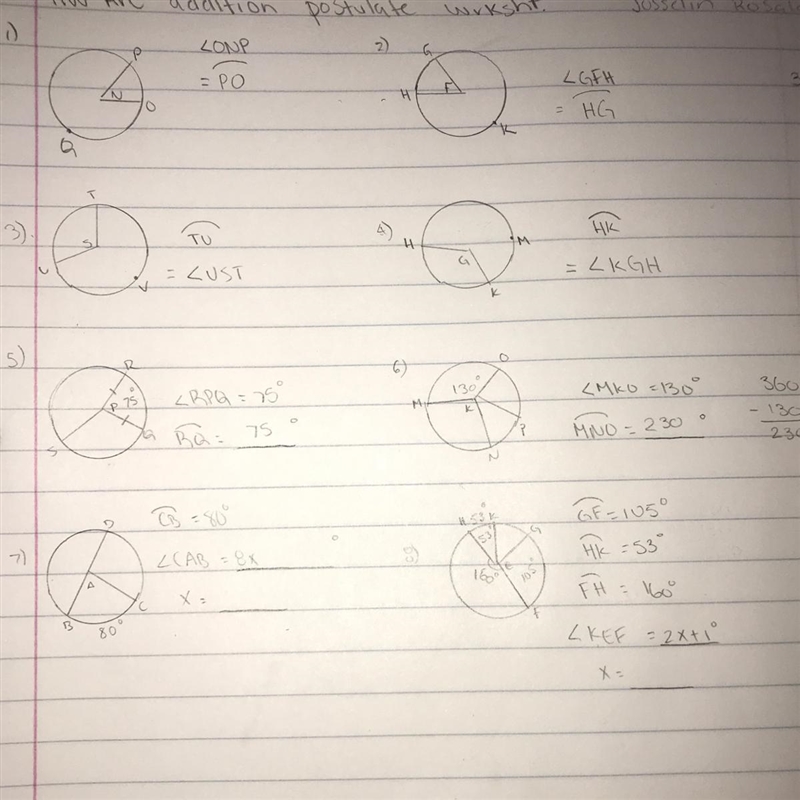 Arc addition postulate wrksht. Josselin
1) P N O Q
∠ONP
= PO
2) G H F K
∠GFH
= HG
3). T S U V
TU
= ∠UST
4) H M G K
HK
= ∠KGH
5) R P 75° Q S
∠RPQ = 75°
RQ = 75°
6) O 130° M K P N
∠MKO = 130°
MNO = 230°
360
- 130
230
7) D A C B 80°
CB = 80°
∠CAB = 8x °
x =
8) H 53° K G 53 E 160° 105° F
GF = 105°
HK = 53°
FH = 160°
∠KEF = 2x+1°
x =